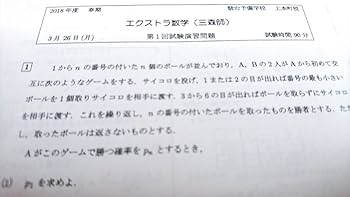 2018年度 春期
駿台予備学校 上本町校
エクストラ数学（三森師）
3月26日（月）
第1回試験演習問題
試験時間 90分
1 1からnの番号の付いたn個のボールが並んでおり，A，Bの2人がAから初めて交
互に次のようなゲームをする．サイコロを投げ，1または2の目が出れば番号の最も小さい
ボールを1個取りサイコロを相手に渡す．3から6の目が出ればボールを取らずにサイコロ
を相手に渡す．これを繰り返し，nの番号の付いたボールを取ったものを勝者とする．ただ
し，取ったボールは返さないものとする．
Aがこのゲームで勝つ確率を pₙ とするとき，
(1) p₁ を求めよ．